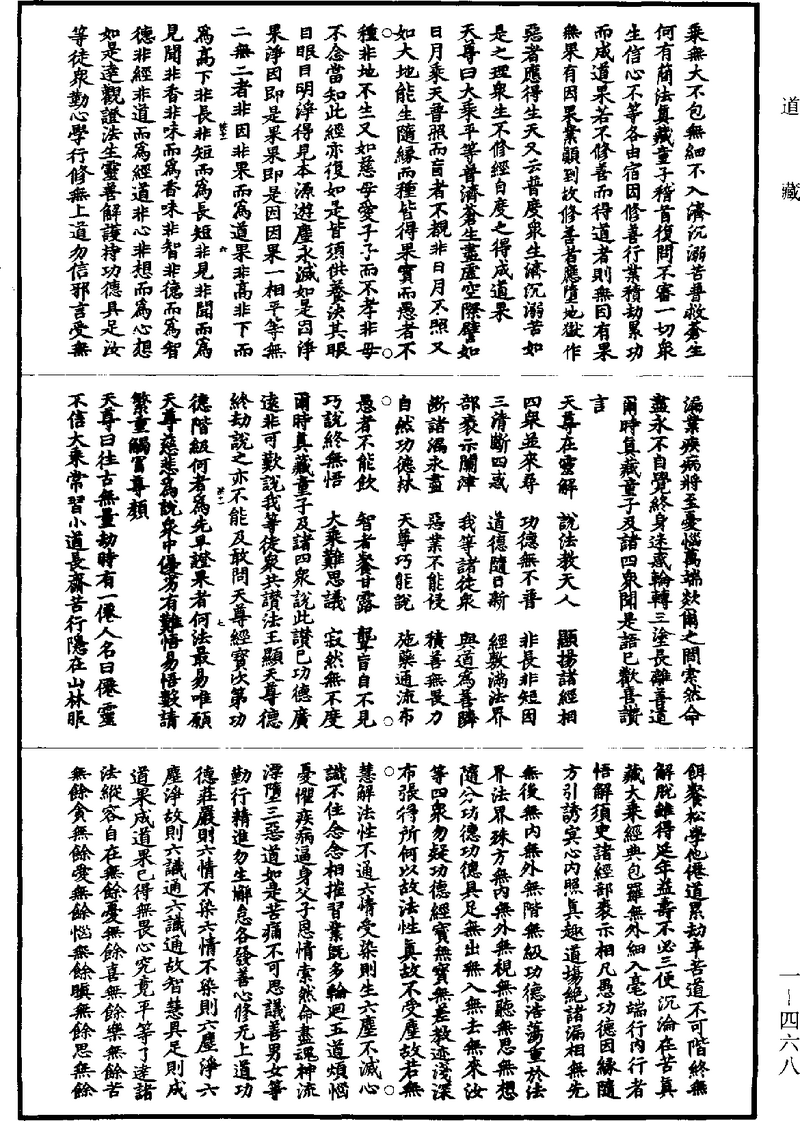 乘無大不包無細不入濟沉溺苦普救蒼生
何有簡法真藏童子稽首復問不審一切衆
生信心不等各由宿因修善行業積劫累功
而成道果若不修善而得道者則無因有果
無果有因果業顛到故修善者應墮地獄作
惡者應得生天又云普度衆生濟沉溺苦如
是之理衆生不修經自度之得成道果
天尊曰大乘平等普濟蒼生盡虛空際譬如
日月乘天普照而盲者不覩非日月不照又
如大地能生隨緣而種皆得果實而愚者不
種非地不生又如慈母愛子子而不孝非母
不念當知此經亦復如是皆須供養決其眼
目眼目明淨得見本源遊塵永滅如是因淨
果淨因即是果果即是因因果一相平等無
二無二者非因非果而爲道果非高非下而
爲高下非長非短而爲長短非見非聞而爲
見聞非香非味而爲香味非智非德而爲智
德非經非道而爲經道非心非想而爲心想
如是達觀證法生靈善解護持功德具足汝
等徒衆勤心學行修無上道勿信邪言受無
漏業疾病將至憂惱萬端欻爾之間索然命
盡永不自覺終身迷惑輪轉三塗長離善道
爾時真藏童子及諸四衆聞是語已歡喜讚
言
天尊在靈解 說法教天人 顯揚諸經相
四衆並來尋 功德無不普 非長非短因
三清斷四惑 道德隨日新 經教滿法界
部袠示關津 我等諸徒衆 與道爲善隣
斷諸漏永盡 惡業不能侵 積善無畏力
自然功德林 天尊巧能說 施藥通流布
愚者不能飲 智者餐甘露 聾盲自不見
巧說終無悟 大乘難思議 寂然無不度
爾時真藏童子及諸四衆說此讚已功德廣
遠非可歎說我等徒衆共讚法王顯天尊德
終劫說之亦不能及敢問天尊經寶次第功
德階級何者爲先早證果者何法最易唯願
天尊慈悲爲說衆中優劣有難悟易悟數請
繁重觸冒尊顏
天尊曰往古無量劫時有一僊人名曰僊靈
不信大乘常習小道長齋苦行隱在山林服
餌餐松學他僊道累劫辛苦道不可階終無
解脫雖得延年益壽不必三使沉淪在苦真
藏大乘經典包羅無外細入毫端行內行者
悟解須臾諸經部袠示相凡愚功德因緣隨
方引誘冥心內照真趣道場絕諸漏相無先
無後無內無外無階無級功德浩蕩重於法
界法界殊方無內無外無視無聽無思無想
隨分功德功德具足無出無入無去無來汝
等四衆勿疑功德經寶無寶無差教迹淺深
布張得所何以故法性真故不受塵故若無
慧解法性不通六情受染則生六塵不滅心
識不住念念相摧習業旣多輪迴五道煩惱
憂懼疾病逼身父子恩情索然命盡魂神流
漂墮三惡道如是苦痛不可思議善男女等
勤行精進勿生懈怠各發善心修无上道功
德莊嚴則六情不染六情不染則六塵淨六
塵淨故則六識通六識通故智慧具足則成
道果成道果已得無畏心究竟平等了達諸
法縱容自在無餘憂無餘喜無餘樂無餘苦
無餘貪無餘愛無餘惱無餘瞋無餘思無餘
道藏
一—四六八